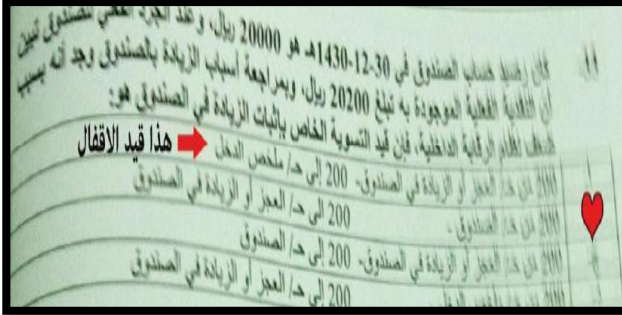 كان رصيد حساب الصندوق في 30-12-1430هـ هو 20000 ريال، وعند الجرد الفعلي للصندوق تبين
أن النقدية الفعلية الموجودة به تبلغ 20200 ريال، وبمراجعة أسباب الزيادة بالصندوق وجد أنه بسبب
ضعف نظام الرقابة الداخلية، فإن قيد التسوية الخاص بإثبات الزيادة في الصندوق هو:
200 من حـ/ العجز أو الزيادة في الصندوق- 200 إلى حـ/ ملخص الدخل
هذا قيد الاقفال
200 من حـ/ الصندوق - 200 إلى حـ/ العجز أو الزيادة في الصندوق
200 من حـ/ العجز أو الزيادة في الصندوق- 200 إلى حـ/ الصندوق
200 إلى حـ/ العجز أو الزيادة في الصندوق